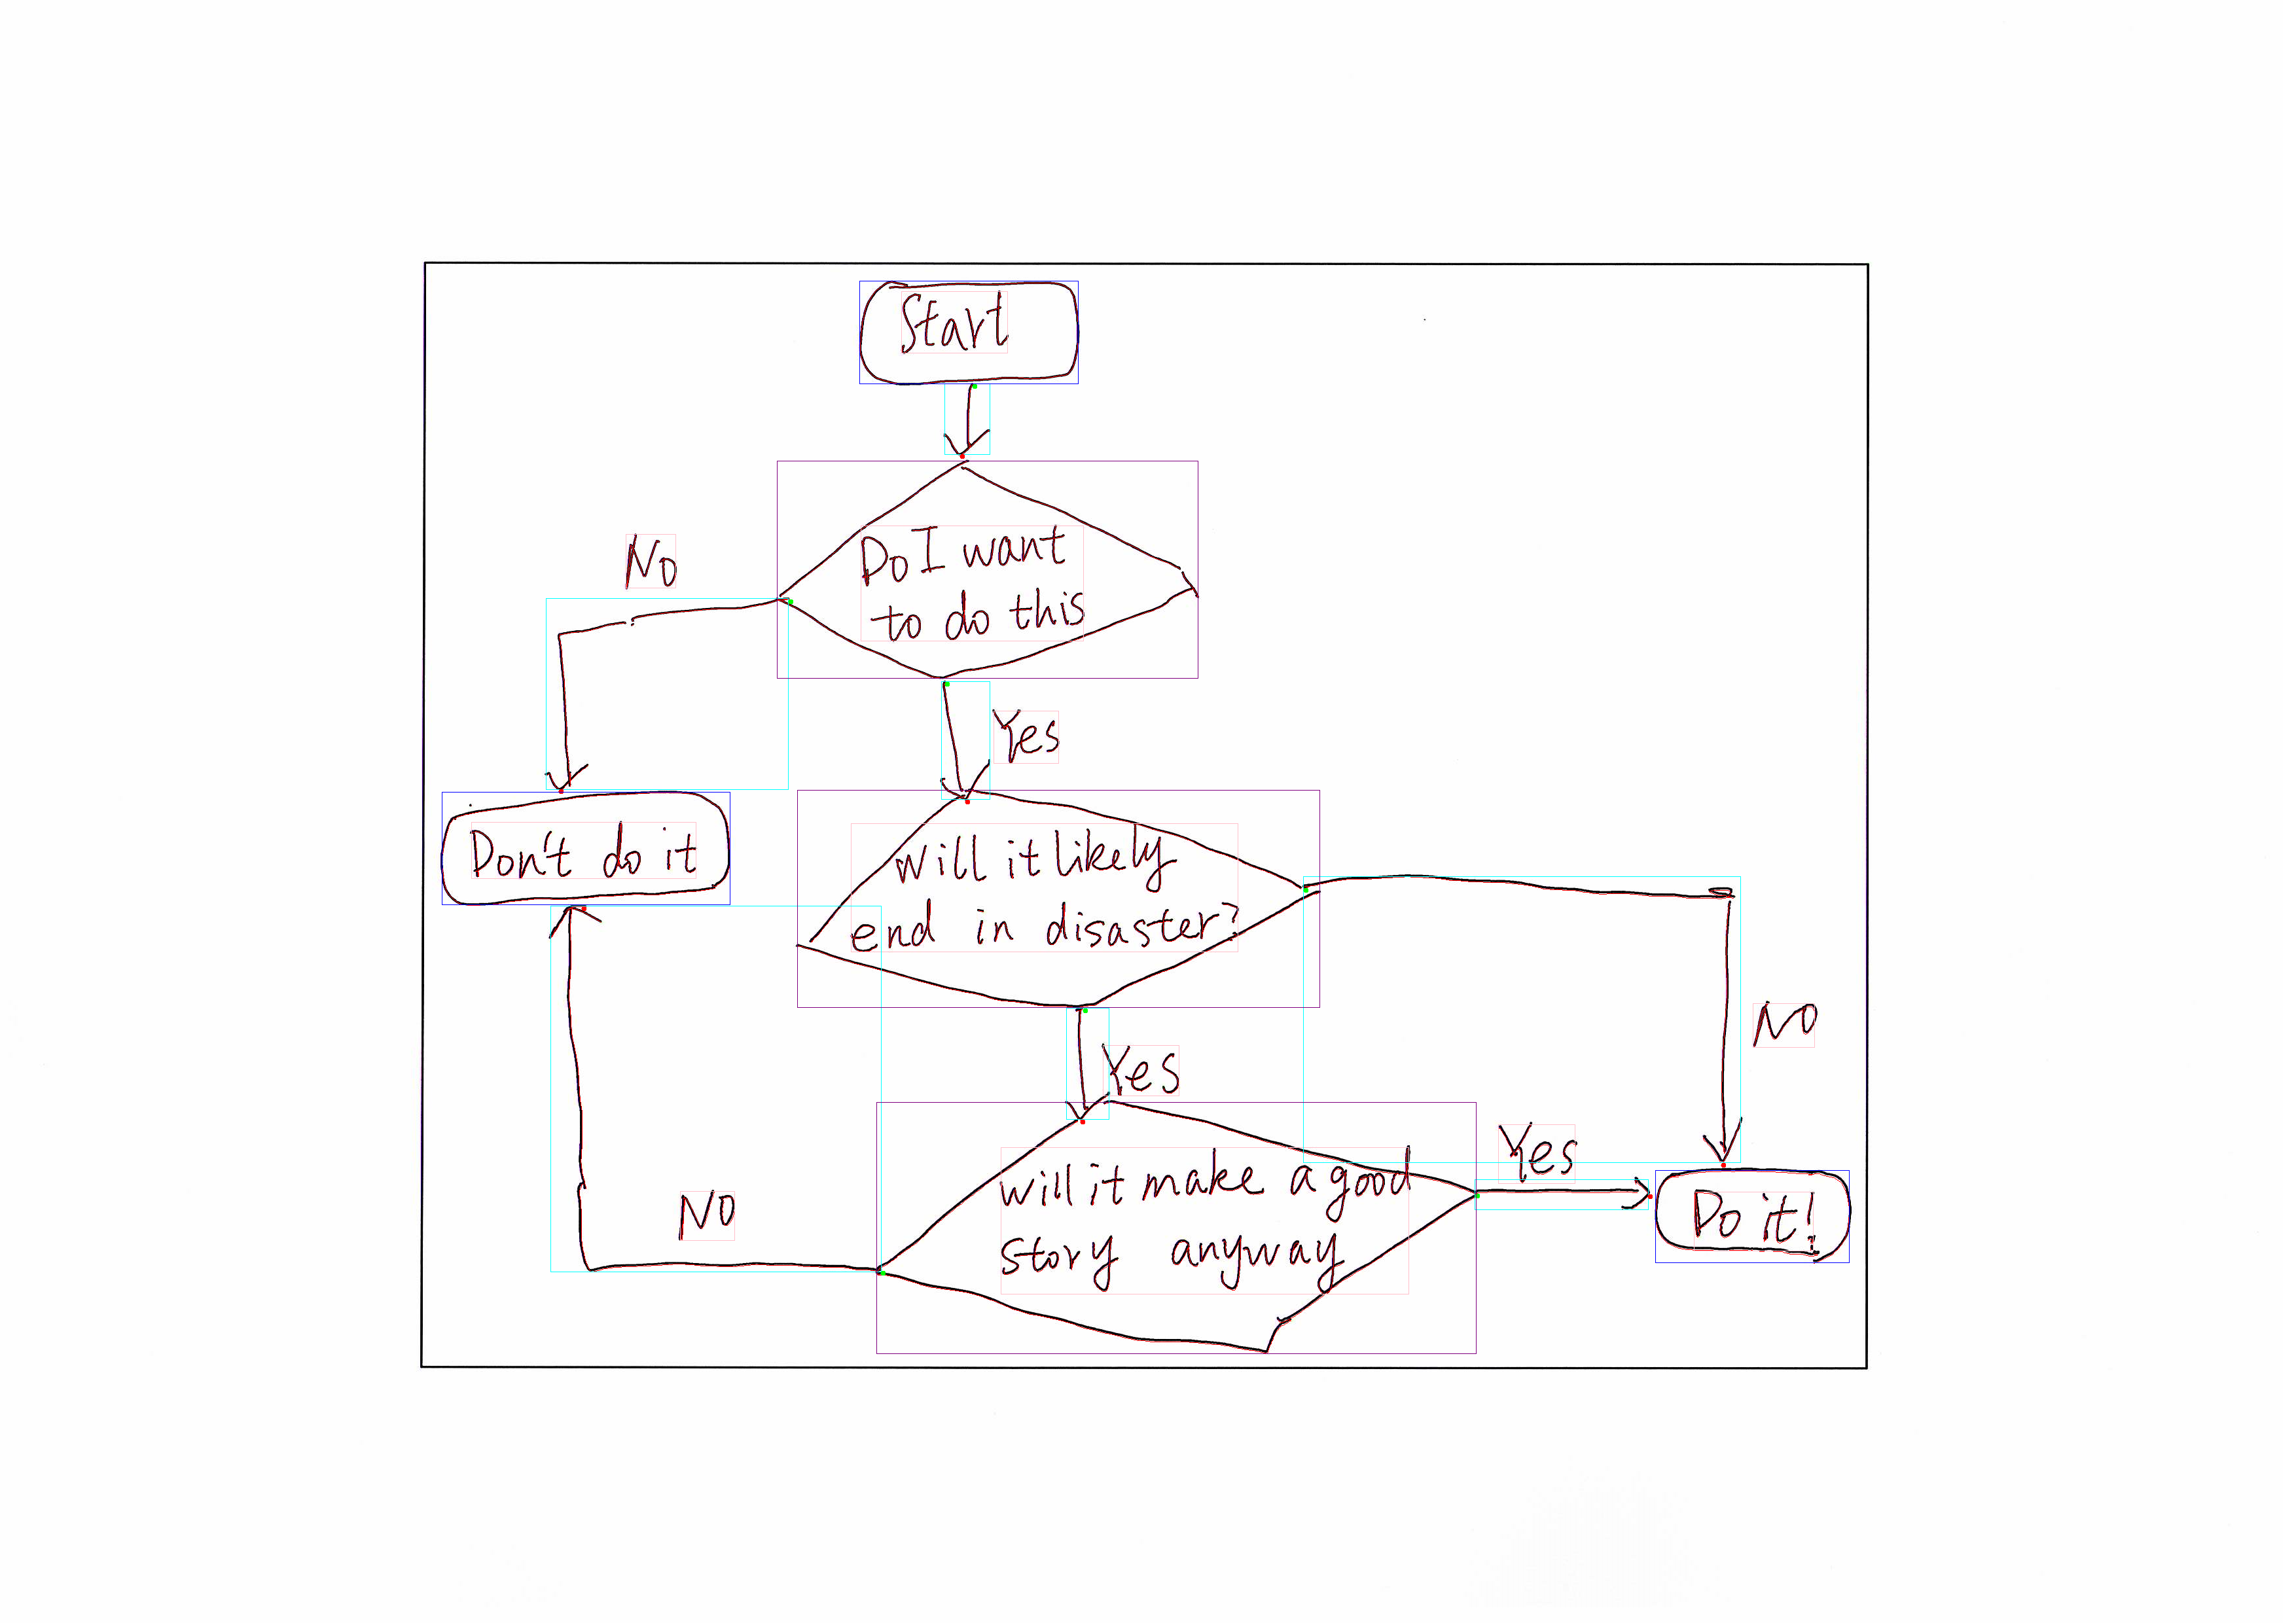 Start
Do I want
to do this
No
Yes
Don't do it
will it likely
end in disaster?
NO
Yes
will it make a good
story anyway
Yes
NO
Do it!